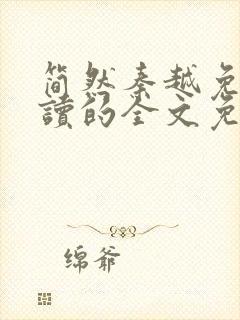 简然秦越免
讀的全文免
绵爷